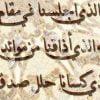 الذي أجلسنا في مقا
الذي أذاقنا من موائد
الذي كسانا حلل صدق